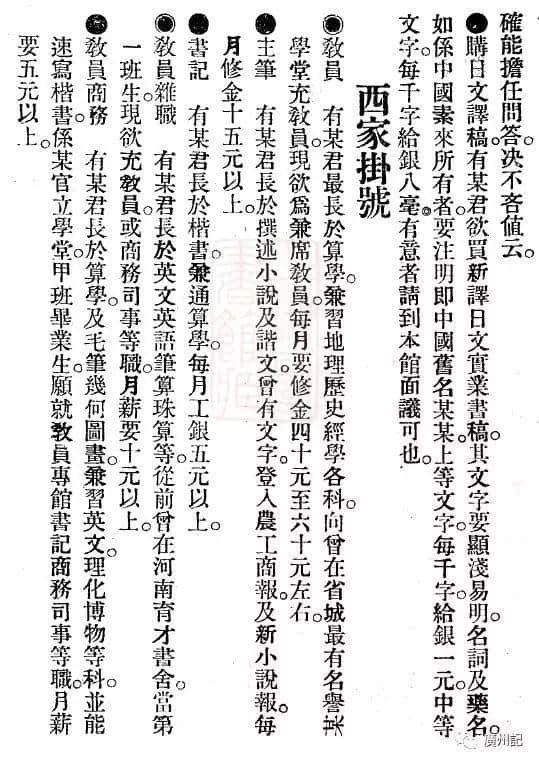 確能擔任問答。決不吝値云。
●購日文譯稿。有某君欲買新譯日文實業書稿。其文字要顯淺易明。名詞及藥名。
如係中國素來所有者。要注明即中國舊名某某。上等文字。每千字給銀一元。中等
文字每千字給銀八毫。有意者請到本館面議可也。
西家掛號
◉敎員　有某君最長於算學。兼習地理歷史經學各科。向曾在省城最有名譽之
學堂充敎員。現欲爲兼席敎員。每月要修金四十元至六十元左右。
●主筆　有某君長於撰述小說及諧文。曾有文字。登入農工商報。及新小說報。每
月修金十五元以上。
●書記　有某君長於楷書。兼通算學。每月工銀五元以上。
◉敎員雜職　有某君長於英文英語筆算珠算等。從前曾在河南育才書舍。當第
一班生。現欲充敎員。或商務司事等職。月薪要十元以上。
●敎員商務　有某君長於算學。及毛筆幾何圖畫。兼習英文。理化博物等科。並能
速寫楷書。係某官立學堂。甲班畢業生。願就敎員專館書記商務司事等職。月薪
要五元以上。
廣州記